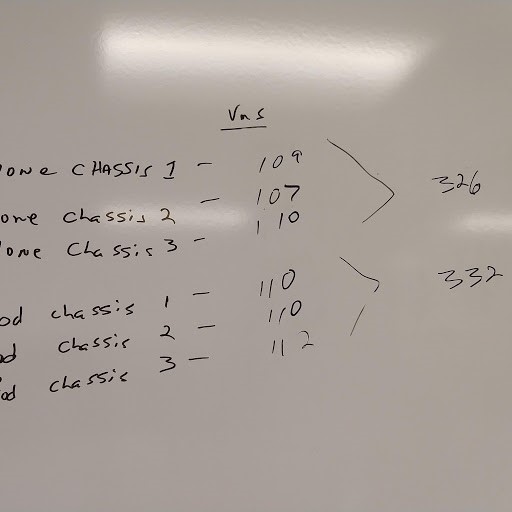 Vms
one CHASSIS 1 - 109
one chassis 2 - 107
one Chassis 3 - 110
326
od chassis 1 - 110
d chassis 2 - 110
od chassis 3 - 112
332